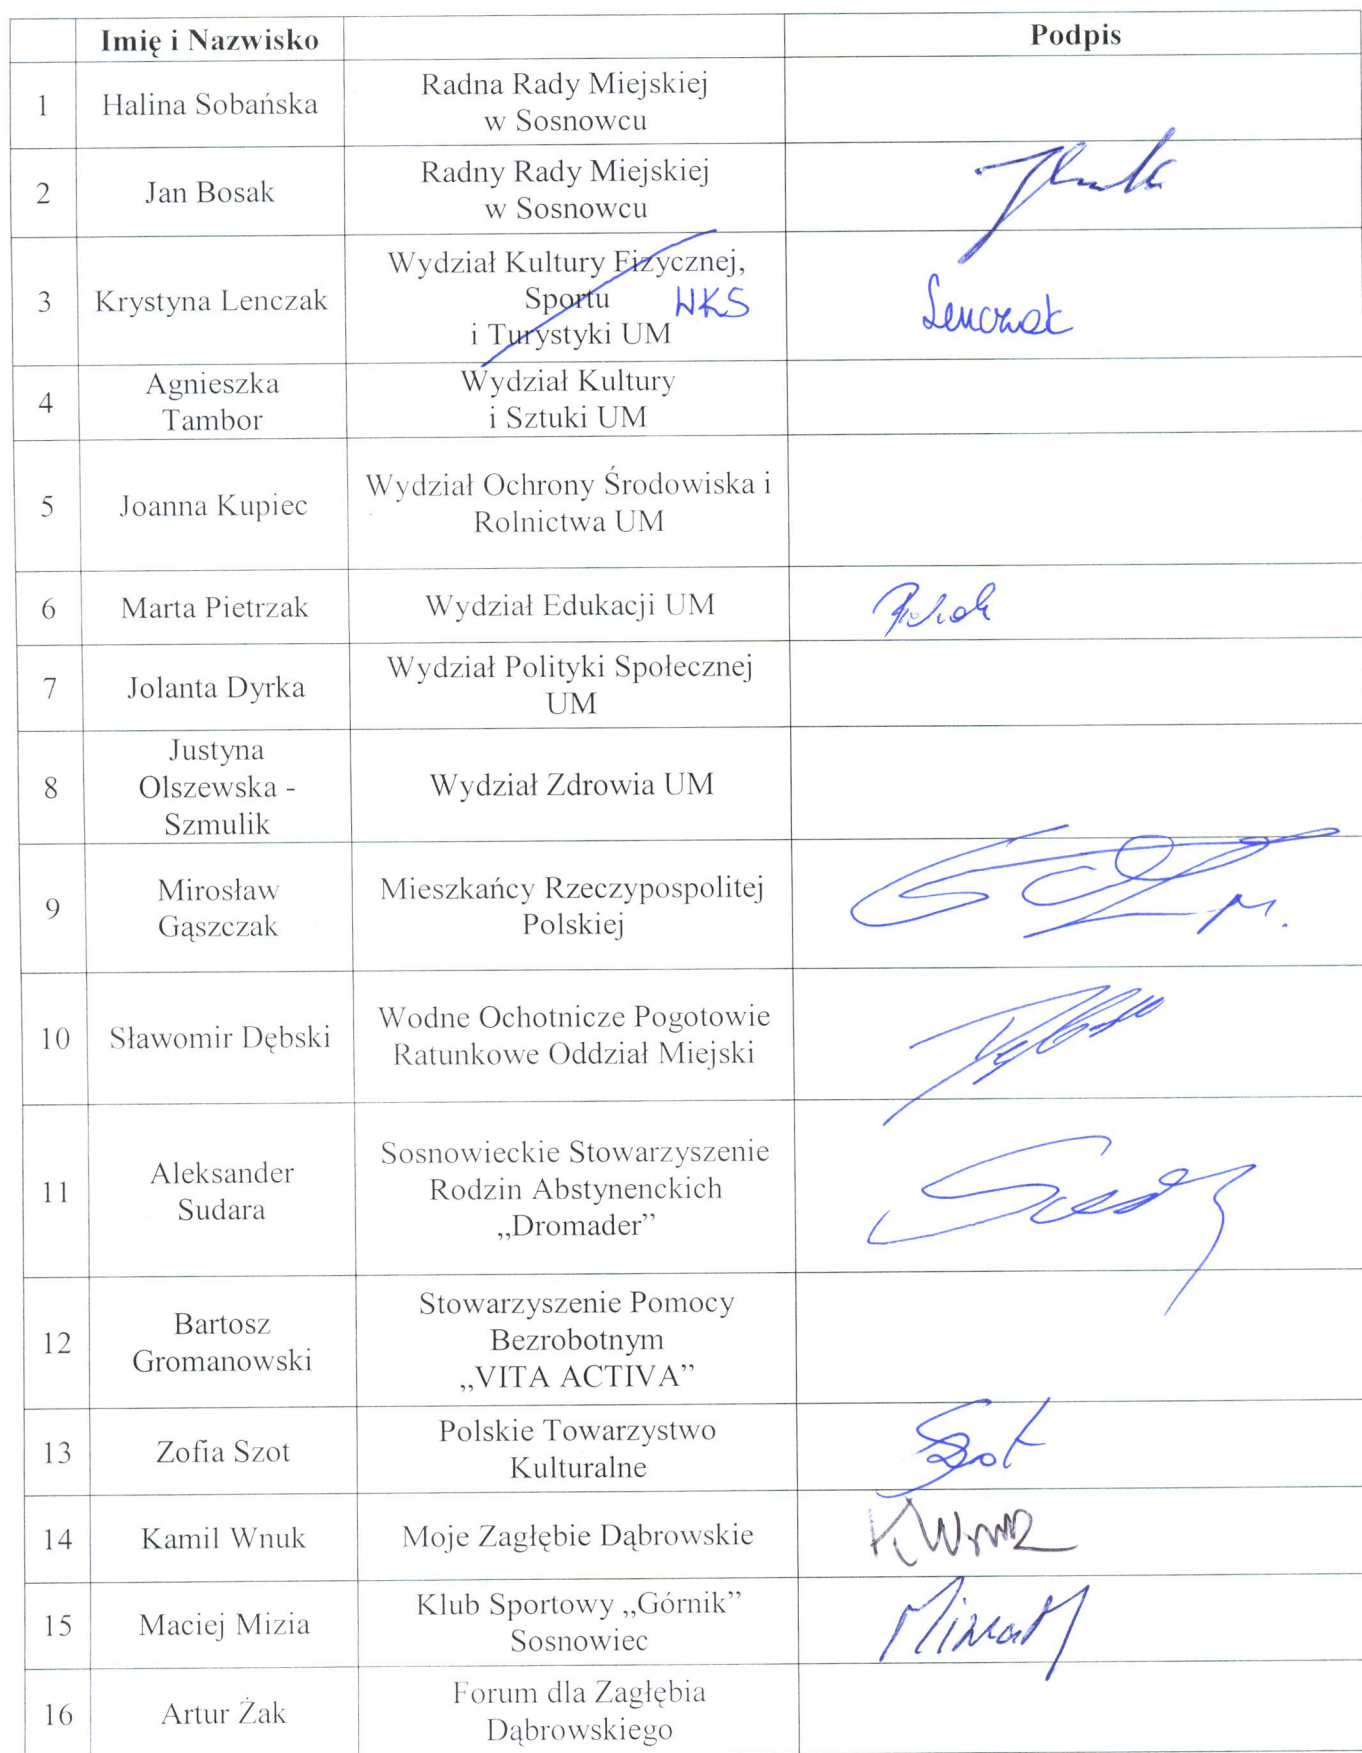 Imię i Nazwisko Podpis
1 Halina Sobańska Radna Rady Miejskiej
w Sosnowcu
2 Jan Bosak Radny Rady Miejskiej
w Sosnowcu
3 Krystyna Lenczak Wydział Kultury Fizycznej,
Sportu WKS Lenczak
i Turystyki UM
4 Agnieszka
Tambor
Wydział Kultury
i Sztuki UM
5 Joanna Kupiec Wydział Ochrony Środowiska i
Rolnictwa UM
6 Marta Pietrzak Wydział Edukacji UM
7 Jolanta Dyrka Wydział Polityki Społecznej
UM
8 Justyna
Olszewska -
Szmulik
Wydział Zdrowia UM
9 Mirosław
Gąszczak
Mieszkańcy Rzeczypospolitej
Polskiej
10 Sławomir Dębski Wodne Ochotnicze Pogotowie
Ratunkowe Oddział Miejski
11 Aleksander
Sudara
Sosnowieckie Stowarzyszenie
Rodzin Abstynenckich
„Dromader”
12 Bartosz
Gromanowski
Stowarzyszenie Pomocy
Bezrobotnym
„VITA ACTIVA”
13 Zofia Szot Polskie Towarzystwo
Kulturalne
Szot
14 Kamil Wnuk Moje Zagłębie Dąbrowskie K Wnuk
15 Maciej Mizia Klub Sportowy „Górnik”
Sosnowiec
16 Artur Żak Forum dla Zagłębia
Dąbrowskiego